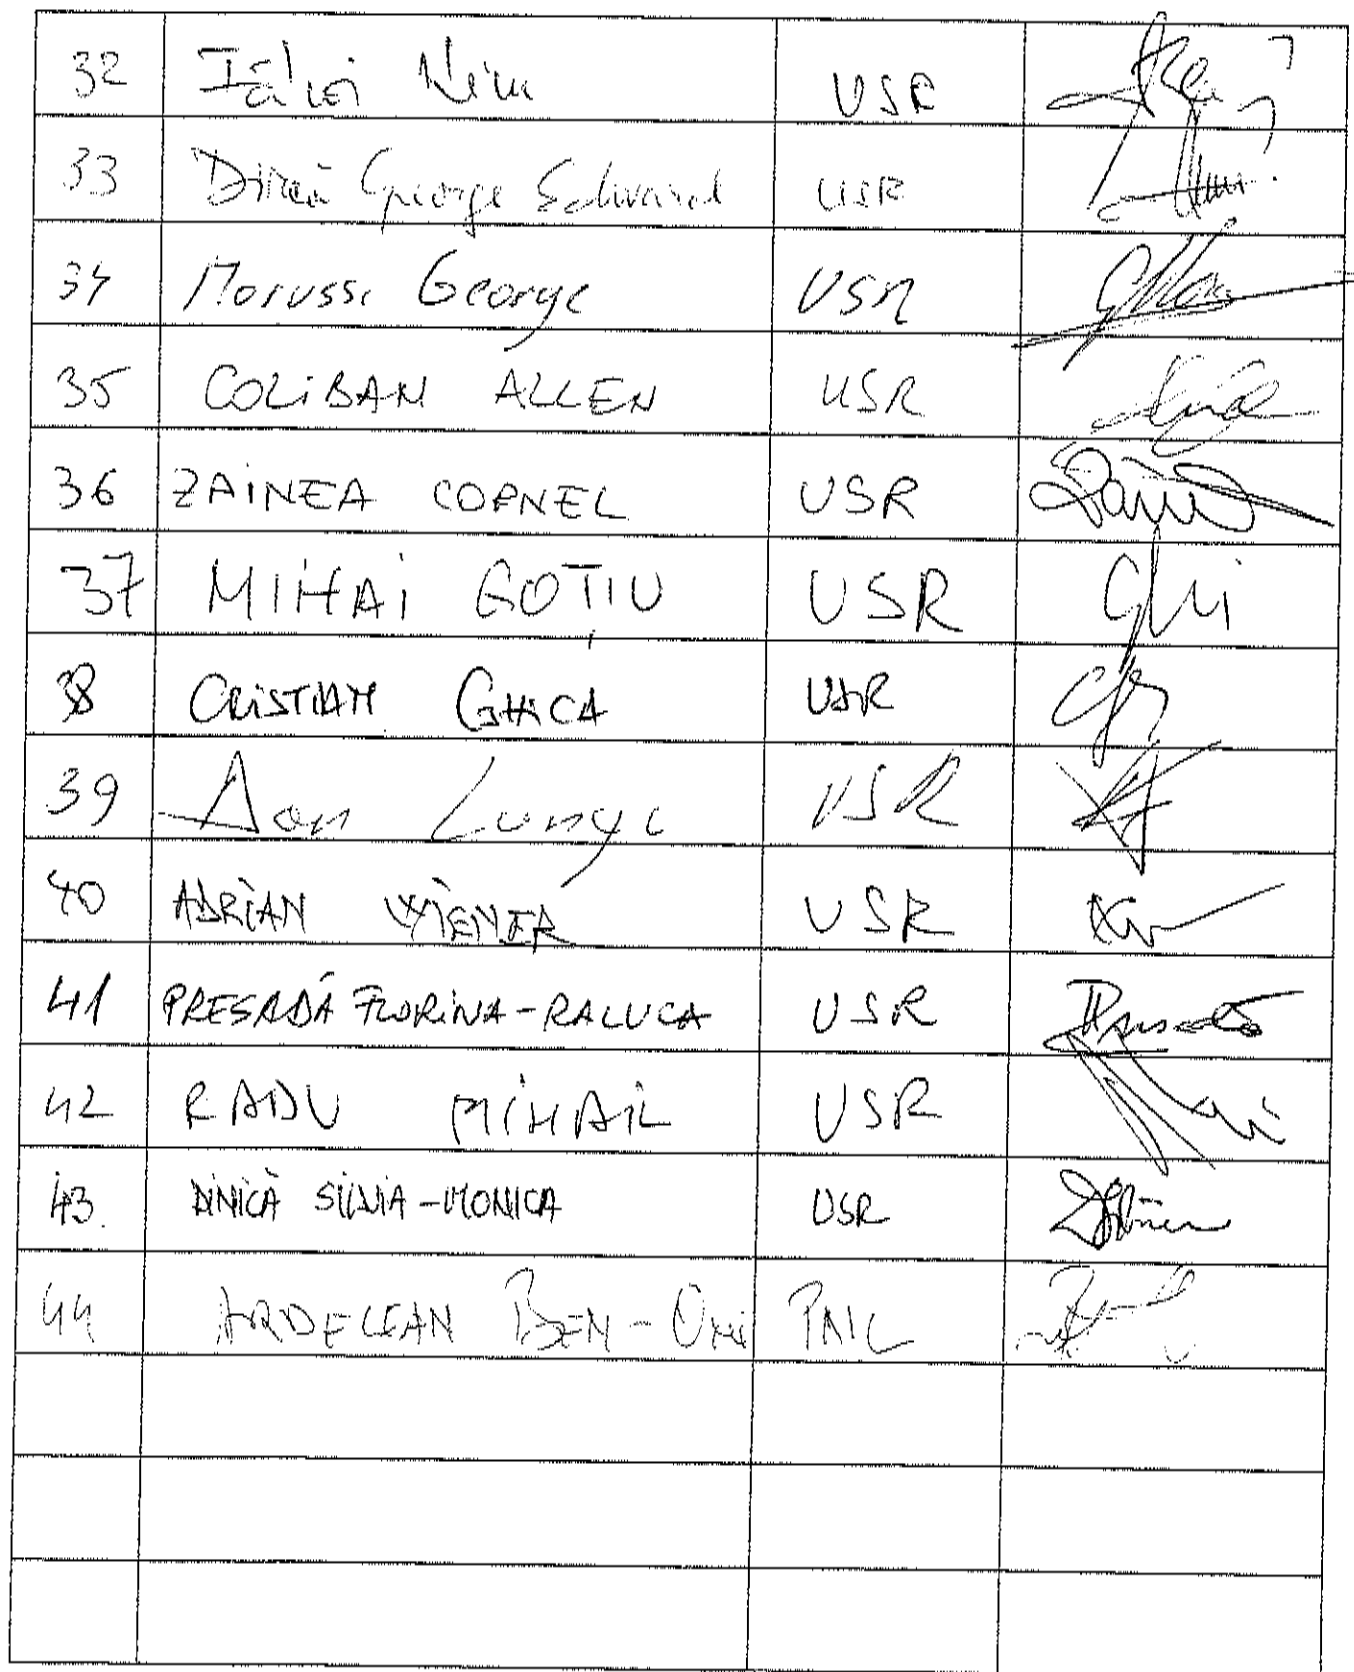 32 USR
33 George USR
34 Morussi George USR
35 COLIBAN ALLEN USR
36 ZAINEA CORNEL USR
37 MIHAI GOȚIU USR
38 CRISTIAN GHICA USR
39 Dan Lungu USR
40 ADRIAN WIENER USR
41 PRESADĂ FLORINA-RALUCA USR
42 RADU MIHAIL USR
43. DINICĂ SILVIA-MONICA USR
44 ARDELEAN BEN-Oni PNL